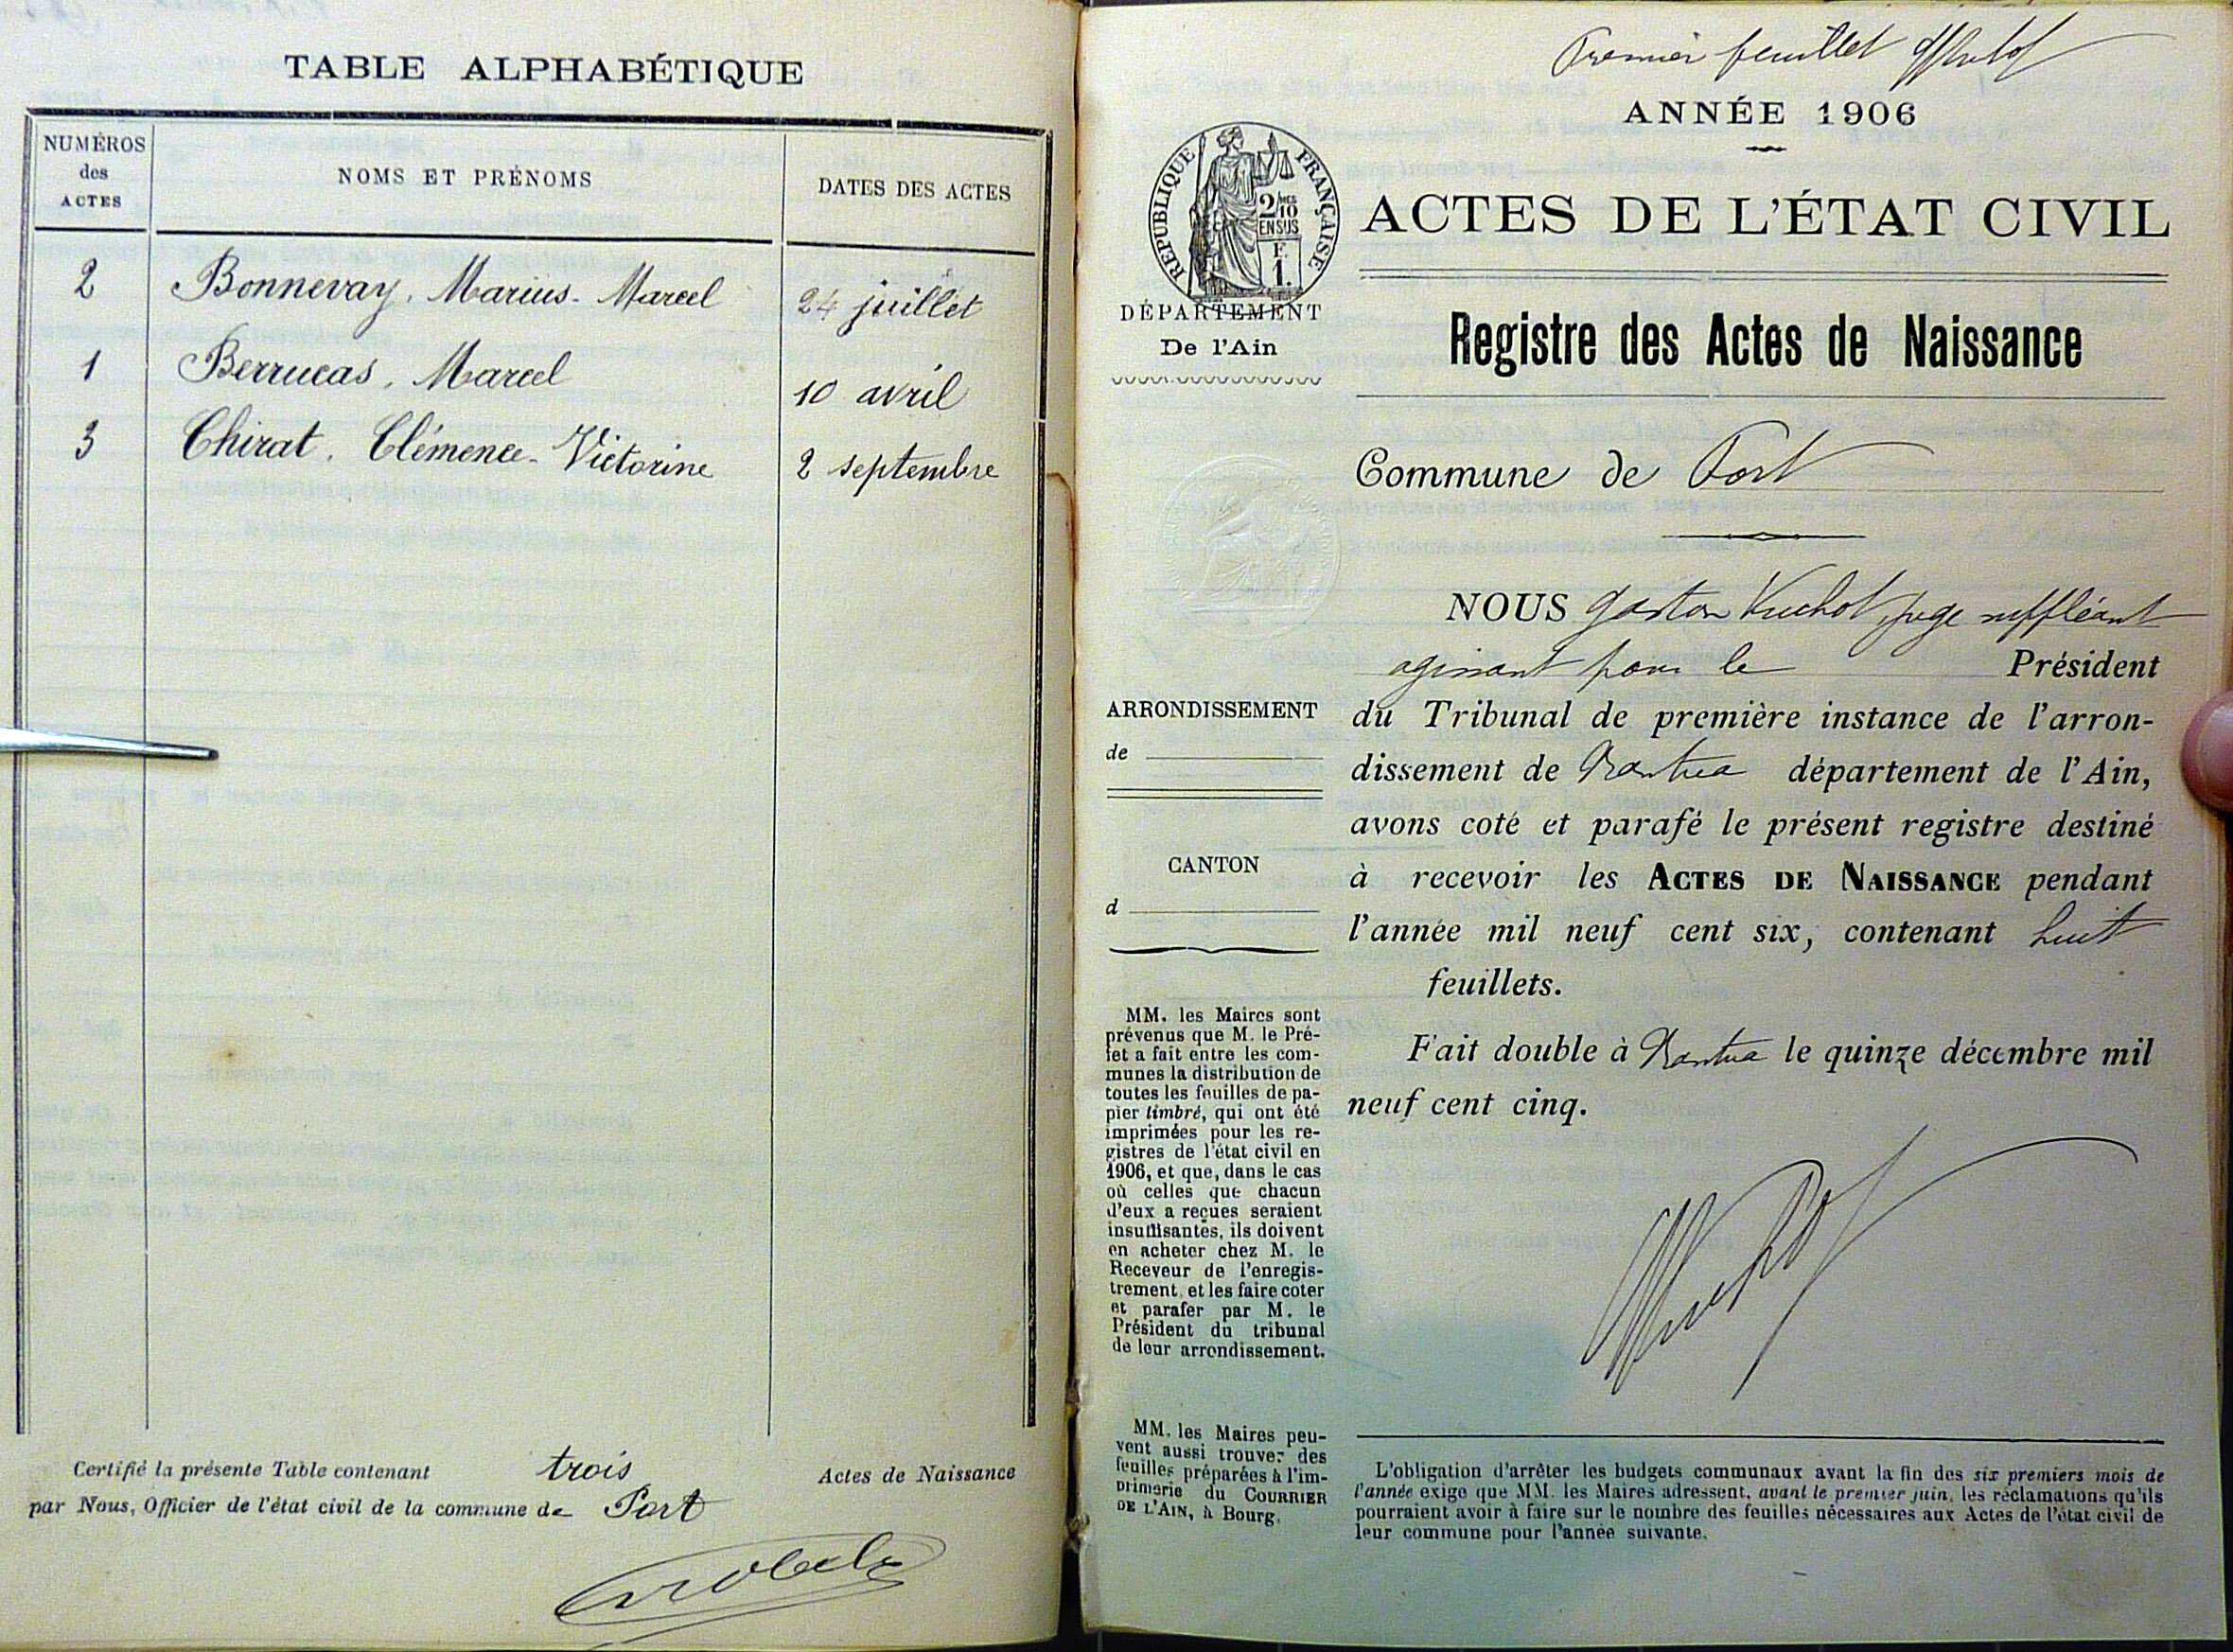 TABLE ALPHABÉTIQUE
NUMÉROS des ACTES
NOMS ET PRÉNOMS
DATES DES ACTES
2 Bonnevay, Marius-Marcel 24 juillet
1 Berrucas, Marcel 10 avril
3 Chirat, Clémence-Victorine 2 septembre
Certifié la présente Table contenant trois Actes de Naissance
par Nous, Officier de l'état civil de la commune de Port
Premier feuillet
ANNÉE 1906
RÉPUBLIQUE FRANÇAISE
2/10 EN SUS
F. 1.
ACTES DE L'ÉTAT CIVIL
DÉPARTEMENT
De l'Ain
Registre des Actes de Naissance
Commune de Port
NOUS Gaston Vuchot, juge suppléant
agissant pour le Président
du Tribunal de première instance de l'arron-
dissement de Nantua département de l'Ain,
avons coté et parafé le présent registre destiné
à recevoir les ACTES DE NAISSANCE pendant
l'année mil neuf cent six, contenant huit
feuillets.
Fait double à Nantua le quinze décembre mil
neuf cent cinq.
ARRONDISSEMENT
de
CANTON
d
MM. les Maires sont
prévenus que M. le Pré-
fet a fait entre les com-
munes la distribution de
toutes les feuilles de pa-
pier timbré, qui ont été
imprimées pour les re-
gistres de l'état civil en
1906, et que, dans le cas
où celles que chacun
d'eux a reçues seraient
insuffisantes, ils doivent
en acheter chez M. le
Receveur de l'enregis-
trement, et les faire coter
et parafer par M. le
Président du tribunal
de leur arrondissement.
MM. les Maires peu-
vent aussi trouver des
feuilles préparées à l'im-
primerie du COURRIER
DE L'AIN, à Bourg.
L'obligation d'arrêter les budgets communaux avant la fin des six premiers mois de
l'année exige que MM. les Maires adressent, avant le premier juin, les réclamations qu'ils
pourraient avoir à faire sur le nombre des feuilles nécessaires aux Actes de l'état civil de
leur commune pour l'année suivante.